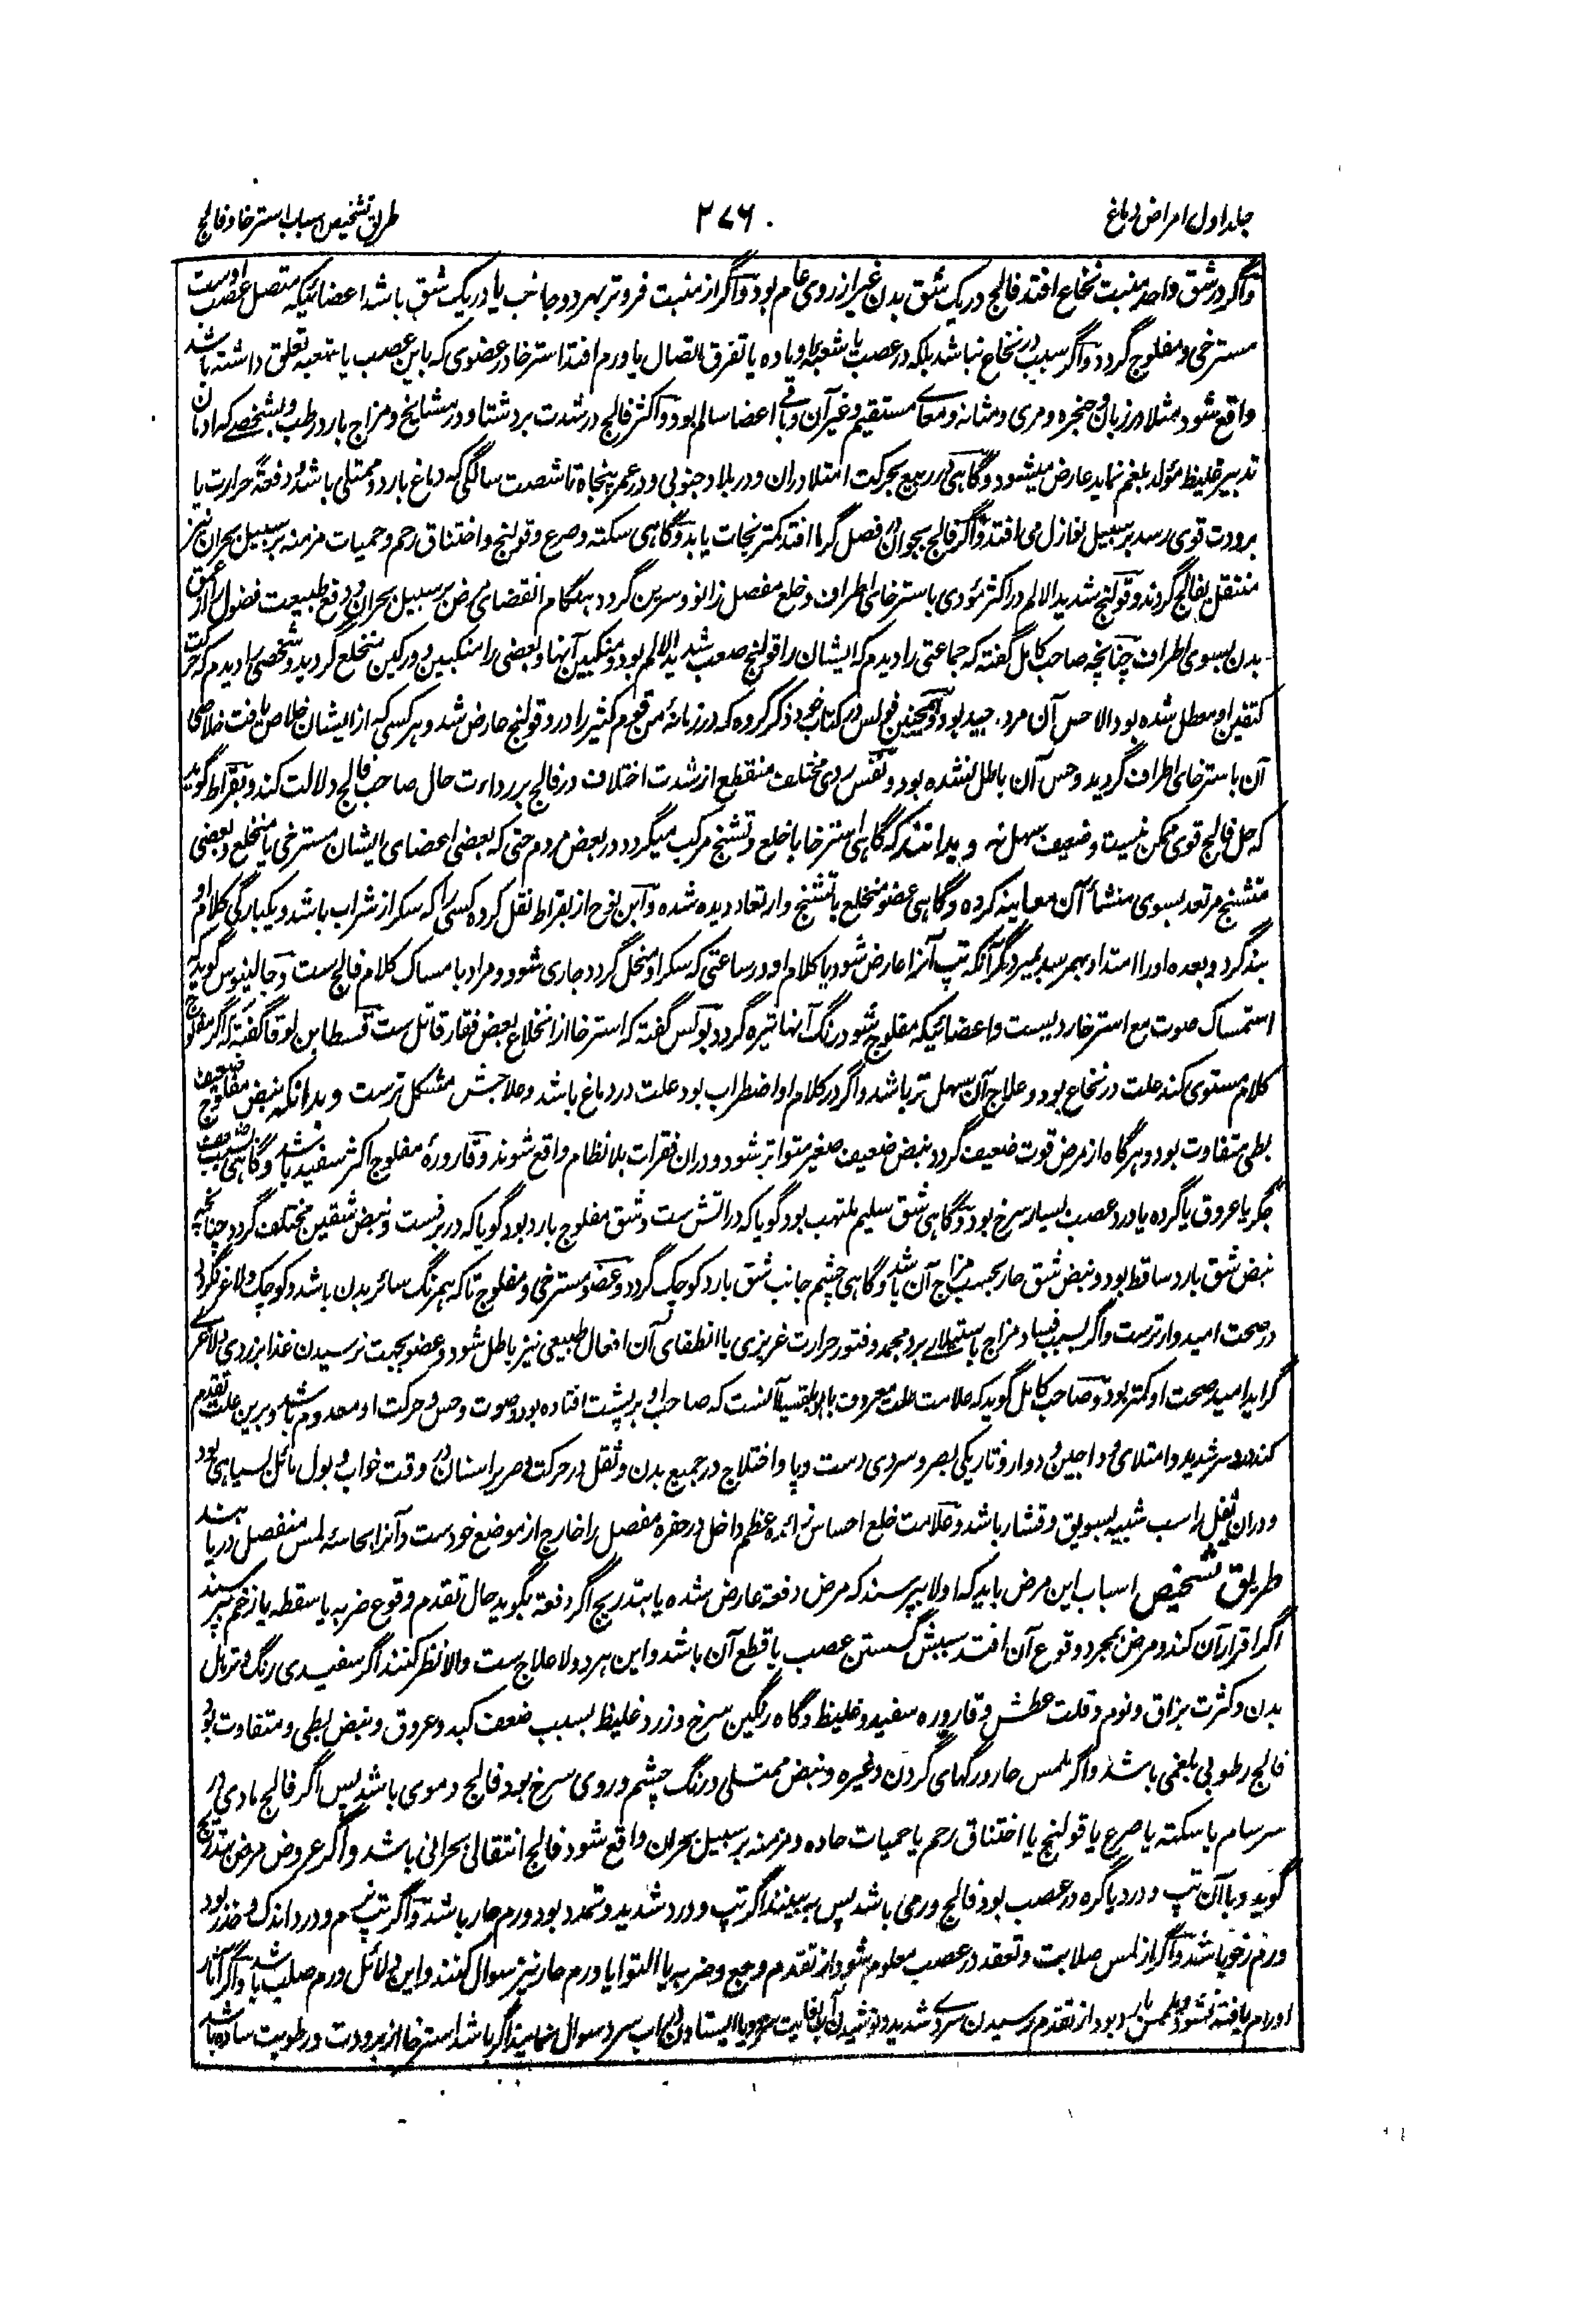 جلد اول امراض دماغ
۲۷۶
طریق تشخیص اسباب استرخا و فالج
و اگر در شق واحد منبت نخاع افتد فالج در یک شق بدن غیر از روی عام بود و اگر از منبت فروتر بهر دو جانب یا در یک شق باشد اعضائیکه متصل عصب اوست
مسترخی و مفلوج گردد و اگر سبب در نخاع نباشد بلکه در عصب یا شعبه او ماده یا تفرق اتصال یا ورم افتد استرخا در عضوی که باین عصب یا شعبه تعلق داشته باشد
واقع شود مثلا در زبان و حنجره و مری و مثانه و معای مستقیم و غیر آن و باقی اعضا سالم بود و اکثر فالج در شدت برد شتا و در مشایخ و مزاج بارد رطب و بشخصے که ادمان
تدبیر غلیظ مؤلد بلغم نماید عارض میشود و گاهی در ربیع بحرکت امتلا دران و در بلاد جنوبی و در عمر پنجاه تا شصت سالگی که دماغ بارد و ممتلی باشد و دفعةً حرارت یا
برودت قوی رسد بر سبیل نوازل می افتد و اگر فالج بجوان در فصل گرما افتد کمتر نجات یابد و گاهی سکته و صرع و قولنج و اختناق رحم و حمیات مزمنه بر سبیل بحران نیز
منتقل بفالج گردند و قولنج شدید الالم در اکثر مؤدی باسترخای اطراف و خلع مفصل زانو و سرین گردد بهنگام انقضای مرض بر سبیل بحران و دفع طبیعت فضول را از عمق
بدن بسوی اطراف چنانچه صاحب کامل گفته که جماعتی را دیدم که ایشان را قولنج صعب شدید الالم بود و منکبین آنها و بعضی را منکبین و ورکین منخلع گردید و شخصی را دیدم که حرکت
کتفین او معطل شده بود الا حس آن مرد جید بود و همچنین فولس در کتاب خود ذکر کرده که در زمانهٔ من قوم کثیر را درد قولنج عارض شد و هر کسی که از ایشان خلاص یافت خلاصی
آن باسترخای اطراف گردید و حس آن باطل نشده بود و تنفس ردی مختلف منقطع از شدت اختلاف در فالج بر رداءت حال صاحب فالج دلالت کند و بقراط گوید
که حل فالج قوی ممکن نیست و ضعیف سهل نه و بدانند که گاهی استرخا با خلع و تشنج مرکب میگردد در بعض مردم حتی که بعضی اعضای ایشان مسترخی یا منخلع و بعضی
متشنج مرتعد بسوی منشأ آن معاینه کرده و گاهی عضو منخلع با تشنج و ارتعاد دیده شده و ابن نوح از بقراط نقل کرده کسی را که سکر از شراب باشد و یکبارگی کلام او
بند گردد و بعده او را امتداد بهم رسد بمیرد مگر آنکه تپ آنرا عارض شود یا کلام او در ساعتی که سکر او منحل گردد جاری شود و مراد بامساک کلام فالج ست و جالینوس گوید که
استمساک صوت مع استرخا ردیست و اعضائیکه مفلوج شود رنگ آنها تیره گردد بولس گفته که استرخا از انخلاع بعض فقار قاتل ست قسطا بن لوقا گفته که اگر مفلوج
کلام مستوی کند علت در نخاع بود و علاج آن سهل تر باشد و اگر در کلام او اضطراب بود علت در دماغ باشد و علاجش مشکل ترست و بدانکه نبض مفلوج ضعیف
بطی متفاوت بود و هر گاه از مرض قوت ضعیف گردد نبض ضعیف صغیر متواتر شود و دران فقرات بلا نظام واقع شوند و قارورهٔ مفلوج اکثر سفید باشد و گاهی بسبب ضعف
جگر یا عروق یا گرده یا درد عصب بسیار سرخ بود و گاهی شق سلیم ملتهب بود گویا که در آتش ست و شق مفلوج بارد بود گویا که در برفیست و نبض شقین مختلف گردد چنانچه
نبض شق بارد ساقط بود و نبض شق حار بحسب مزاج آن باشد و گاهی چشم جانب شق بارد کوچک گردد و عضو مسترخی و مفلوج تا که همرنگ سائر بدن باشد و کوچک و لاغر نگردد
در صحت امیدوارترست و اگر بسبب فساد مزاج باستیلای برد مجمد و فتور حرارت غریزی یا انطفای آن افعال طبیعی نیز باطل شود و عضو بجهت نرسیدن غذا بزردی و لاغری
گراید امید صحت او کمتر بود و صاحب کامل گوید که علامت علت معروف بابوبلقسیا آنست که صاحب او بر پشت افتاده بود و صوت و حس و حرکت او معدوم باشد و برین علت تقدم
کند درد سر شدید و امتلای و داجین و دوار و تاریکی بصر و سردی دست و پا و اختلاج در جمیع بدن و ثقل در حرکت و صریر اسنان در وقت خواب و بول مائل بسیاهی بود
و دران ثفل راسب شبیه بسویق و قشار باشد و علامت خلع احساس زائده عظم داخل در حفره مفصل را خارج از موضع خودست و آنرا بحاسهٔ لمس منفصل دریابند
طریق تشخیص اسباب این مرض باید که اولا بپرسند که مرض دفعة عارض شده یا بتدریج اگر دفعة بگوید حال تقدم وقوع ضربه یا سقطه یا زخم بپرسند
اگر اقرار آن کند و مرض بمجرد وقوع آن افتد سببش گسستن عصب یا قطع آن باشد و این هر دو لا علاج ست والا نظر کنند اگر سفیدی رنگ و ترهل
بدن و کثرت بزاق و نوم و قلت عطش و قاروره سفید و غلیظ و گاه رنگین سرخ و زرد غلیظ بسبب ضعف کبد و عروق و نبض بطی و متفاوت بود
فالج رطوبی بلغمی باشد و اگر ملمس حار و رگهای گردن و غیره و نبض ممتلی و رنگ چشم و روی سرخ بود فالج دموی باشد پس اگر فالج مادی در
سرسام یا سکته یا صرع یا قولنج یا اختناق رحم یا حمیات حاده و مزمنه بر سبیل بحران واقع شود فالج انتقالی بحرانی باشد و اگر عروض مرض بتدریج
گوید و با آن تپ و درد یا گره در عصب بود فالج ورمی باشد پس به بینند اگر تپ و درد شدید و تمدد بود ورم حار باشد و اگر تپ نرم و درد اندک و خدر بود
ورم رخو باشد و اگر از لمس صلابت و تعقد در عصب معلوم شود از تقدم وجع و ضربه یا التوا یا ورم حار نیز سوال کنند و این دلائل ورم صلب باشد و اگر آثار
اورام یافته نشود و ملمس بارد بود از تقدم رسیدن سردی شدید و نوشیدن آب بغایت سرد و یا ایستادن در آب سرد سوال نمایند اگر باشد استرخا از برودت و رطوبت ساده باشد